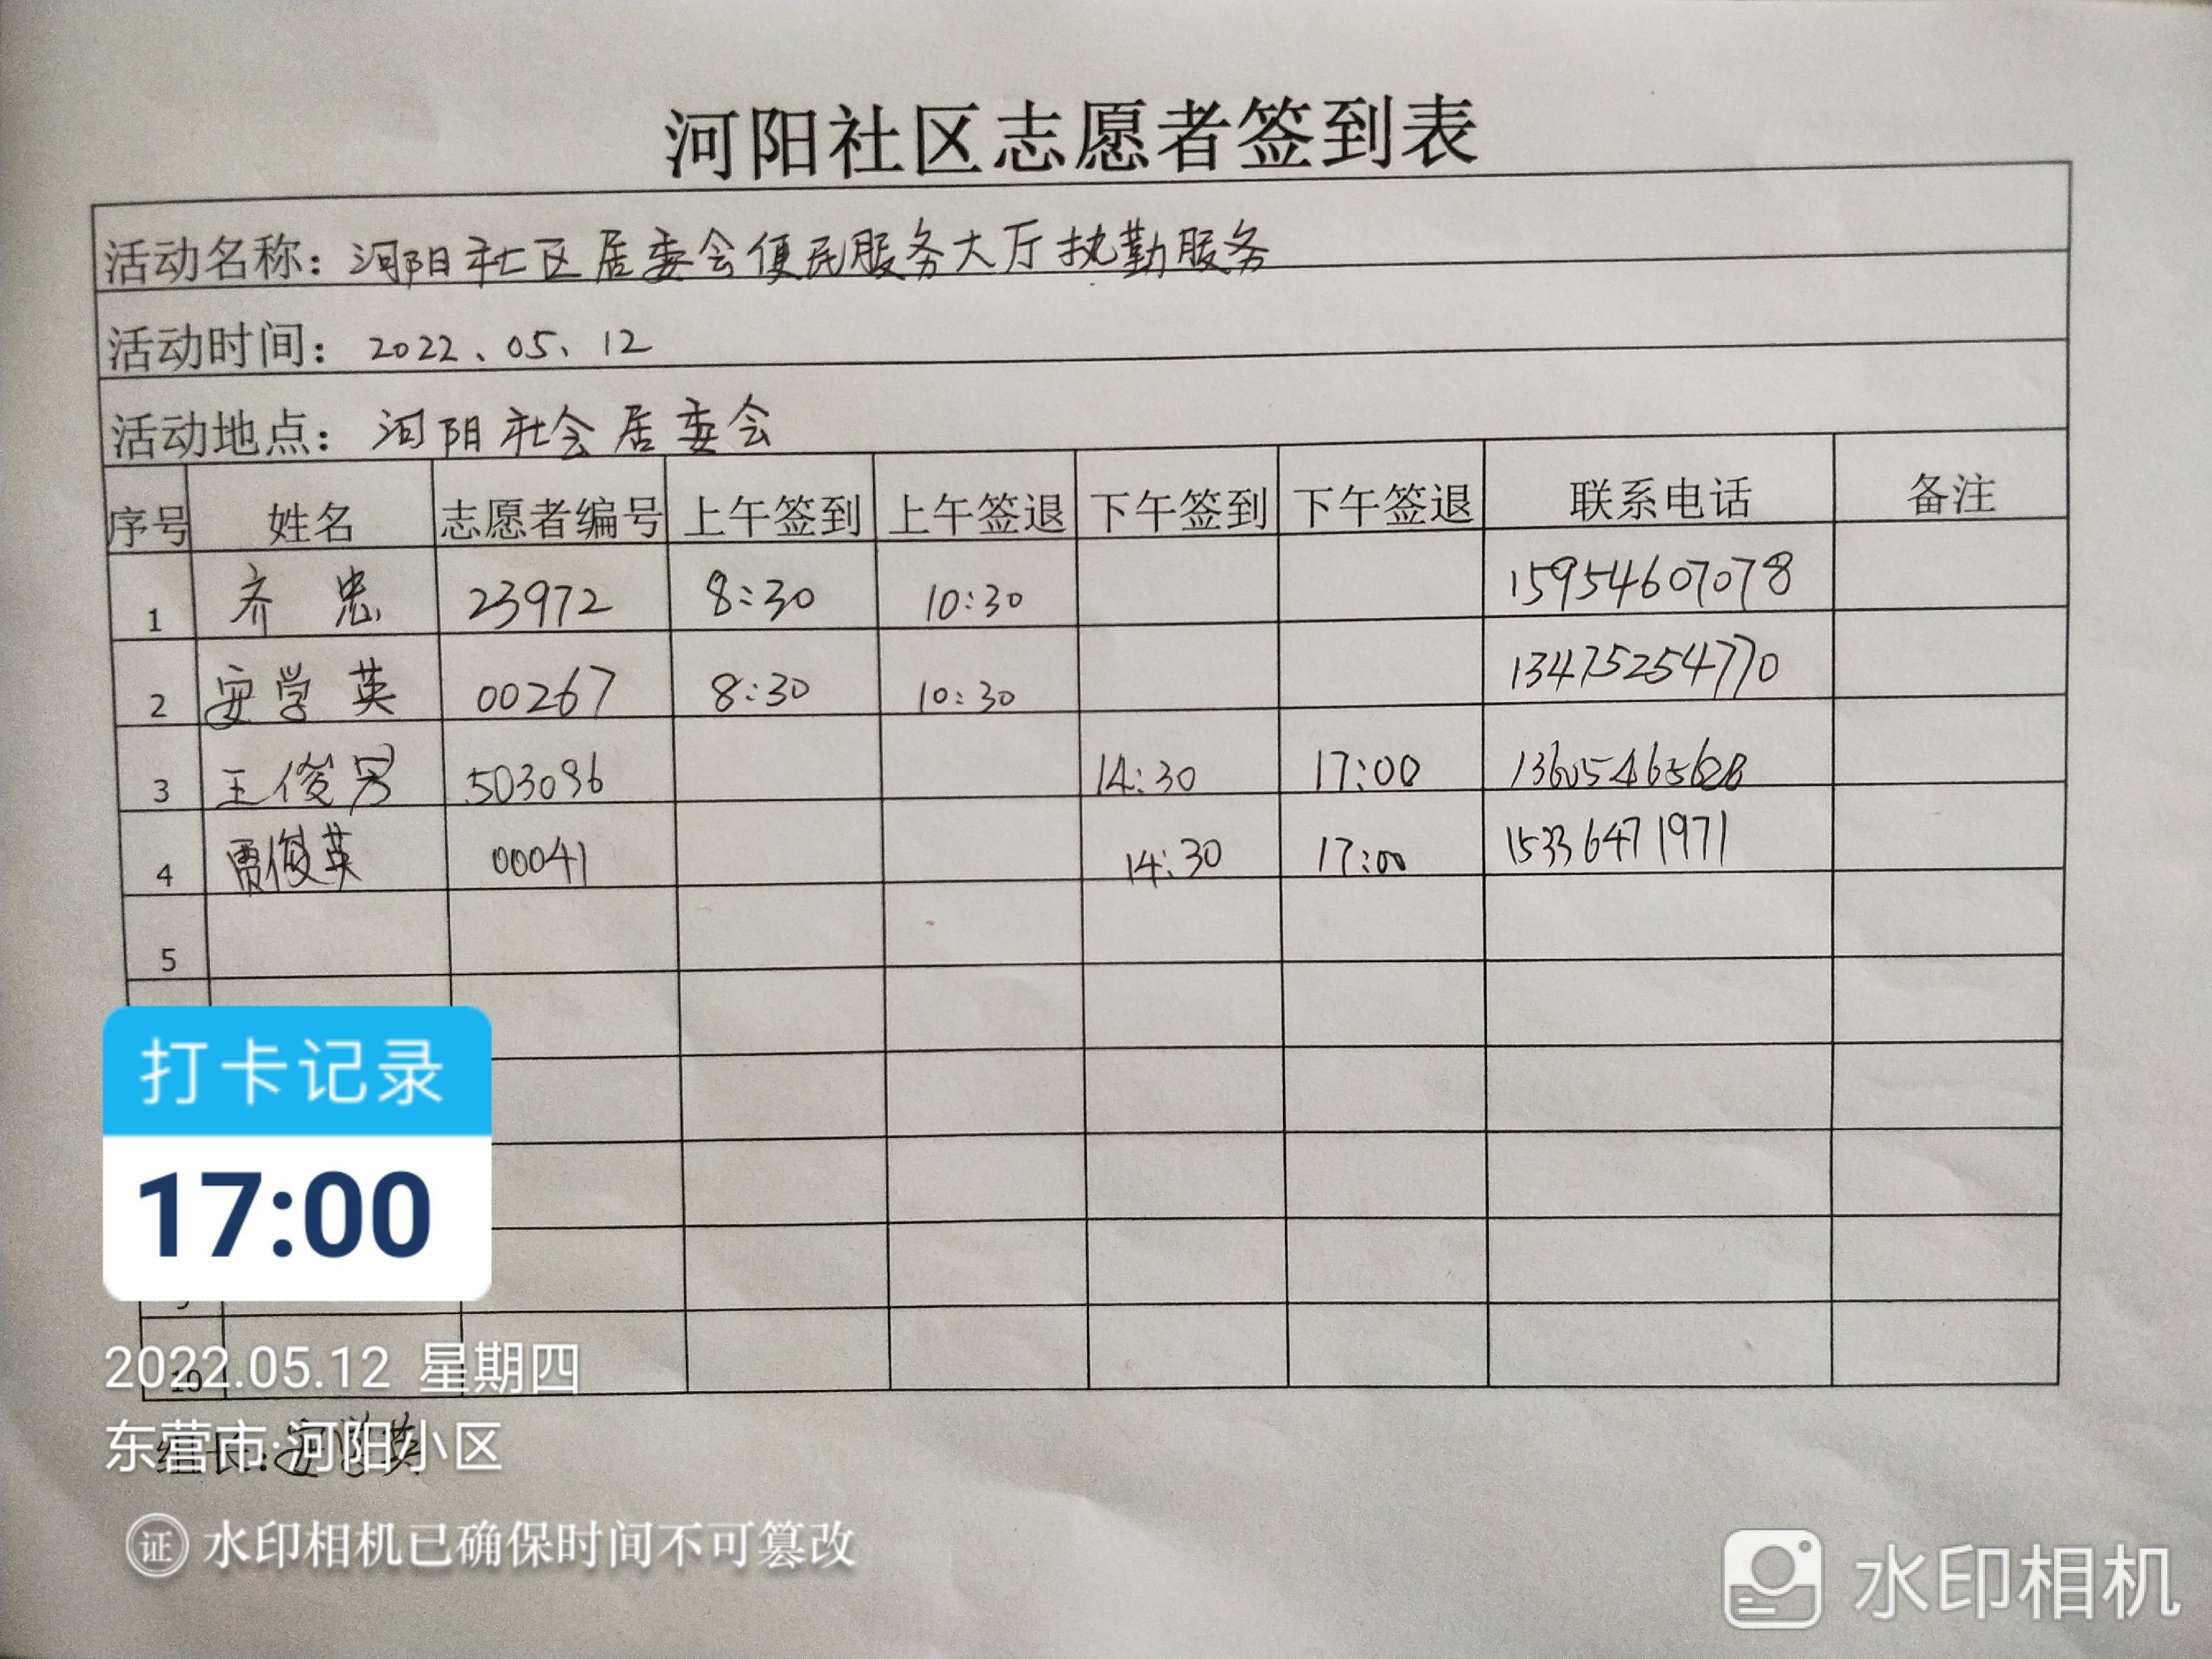 河阳社区志愿者签到表
活动名称：河阳社区居委会便民服务大厅执勤服务
活动时间：2022、05、12
活动地点：河阳社会居委会
序号 姓名 志愿者编号 上午签到 上午签退 下午签到 下午签退 联系电话 备注
1 齐忠 23972 8:30 10:30 15954607078
2 安学英 00267 8:30 10:30 13475254770
3 王俊男 503096 14:30 17:00
4 贾俊英 00041 14:30 17:00 15336471971
5
打卡记录
17:00
9
10
2022.05.12 星期四
东营市·河阳小区
组长:安学英
证 水印相机已确保时间不可篡改
水印相机